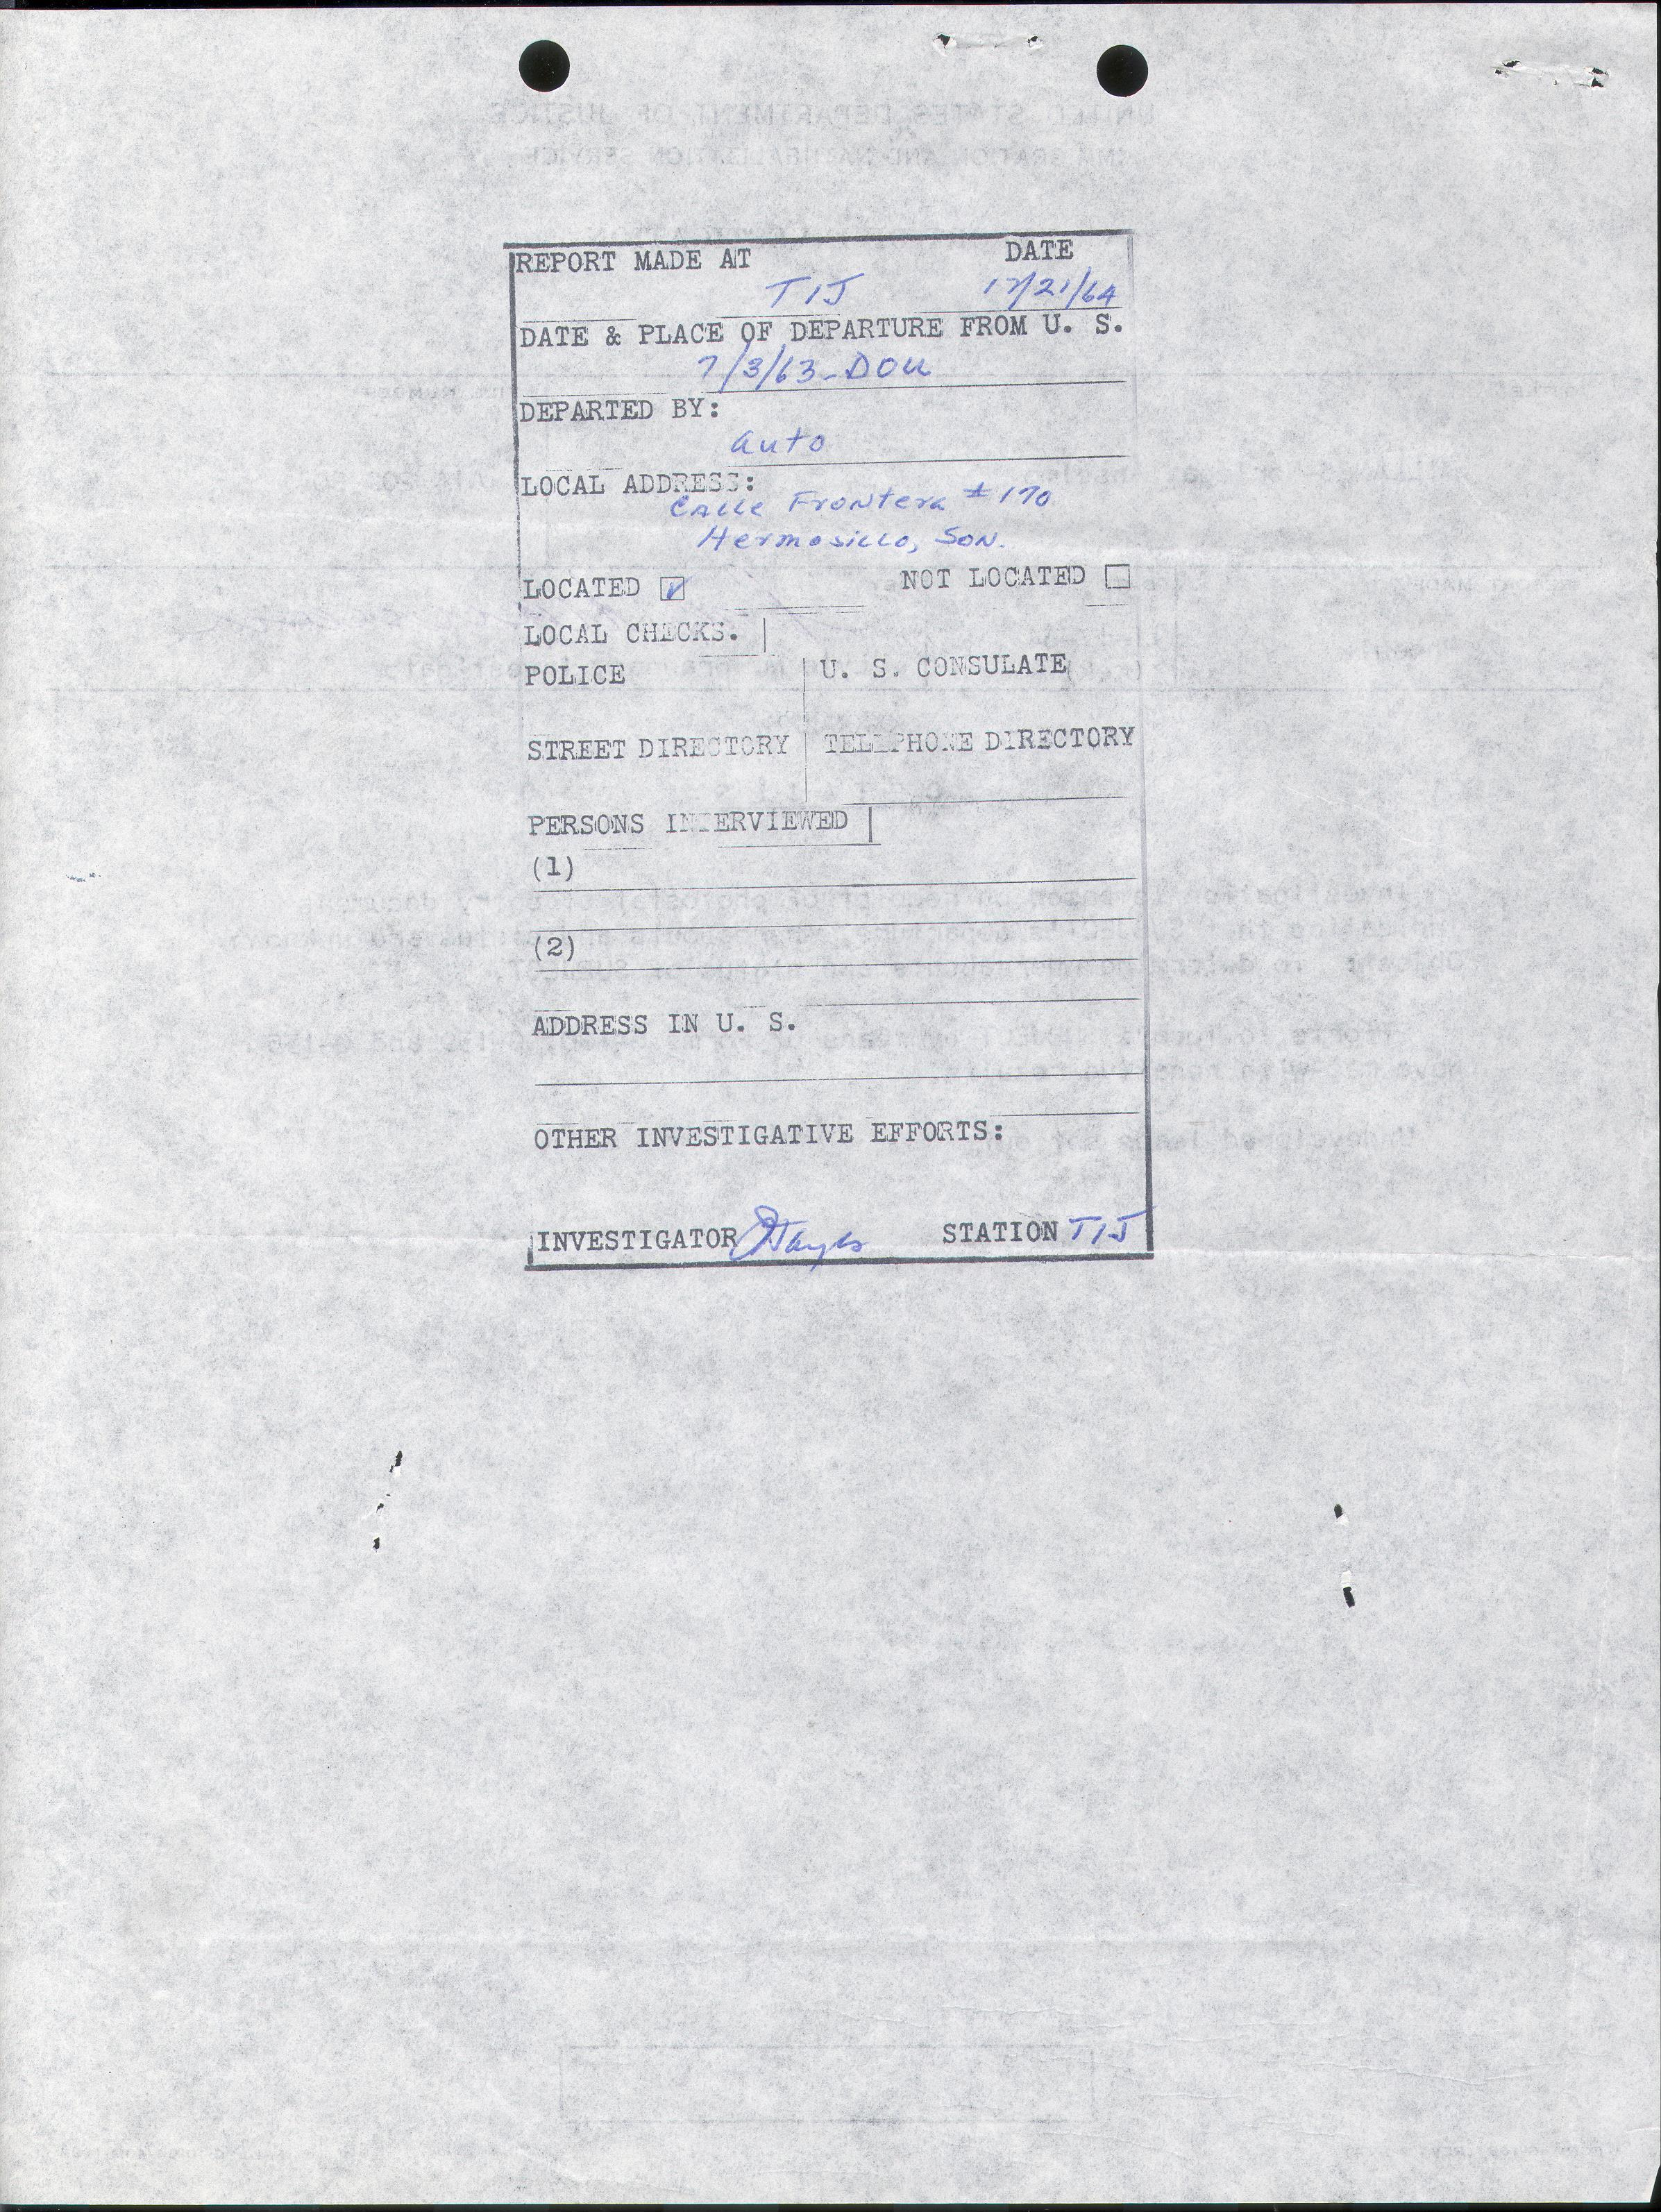 REPORT MADE AT DATE
TIJ 12/21/64
DATE & PLACE OF DEPARTURE FROM U. S.
7/3/63-DOU
DEPARTED BY:
auto
LOCAL ADDRESS:
Calle Frontera #170
Hermosillo, Son.
LOCATED ☑ NOT LOCATED ☐
LOCAL CHECKS.
POLICE U. S. CONSULATE
STREET DIRECTORY TELEPHONE DIRECTORY
PERSONS INTERVIEWED
(1)
(2)
ADDRESS IN U. S.
OTHER INVESTIGATIVE EFFORTS:
INVESTIGATOR STATION TIJ